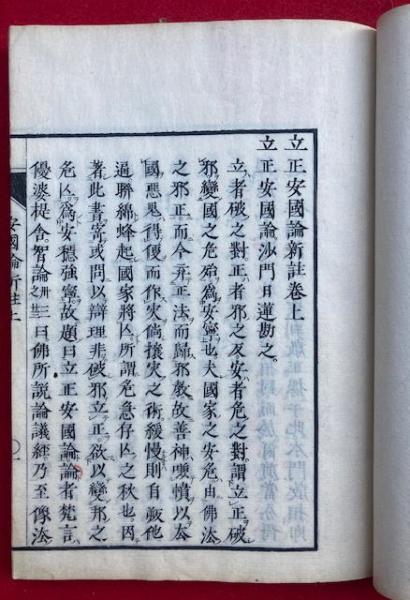 立正安國論新註卷上
立正安國論沙門日蓮勘之
立者破之對正者邪之反安者危之對謂立正破
邪變國之危殆為安寧也夫國家之安危由佛法
之邪正而今弃正法而歸邪教故善神嗔憤以去
國惡鬼得便而作災倘攘災之術緩慢則自厥他
逼聯綿蜂起國家將亾所謂危急存亾之秋也因
著此書寄或問以辯理非破邪立正欲以變邦之
危亾為安穩強寧故題曰立正安國論論者梵言
優婆提舍智論卅三之上曰佛所說論議經乃至像法
安國論新註上
〇一